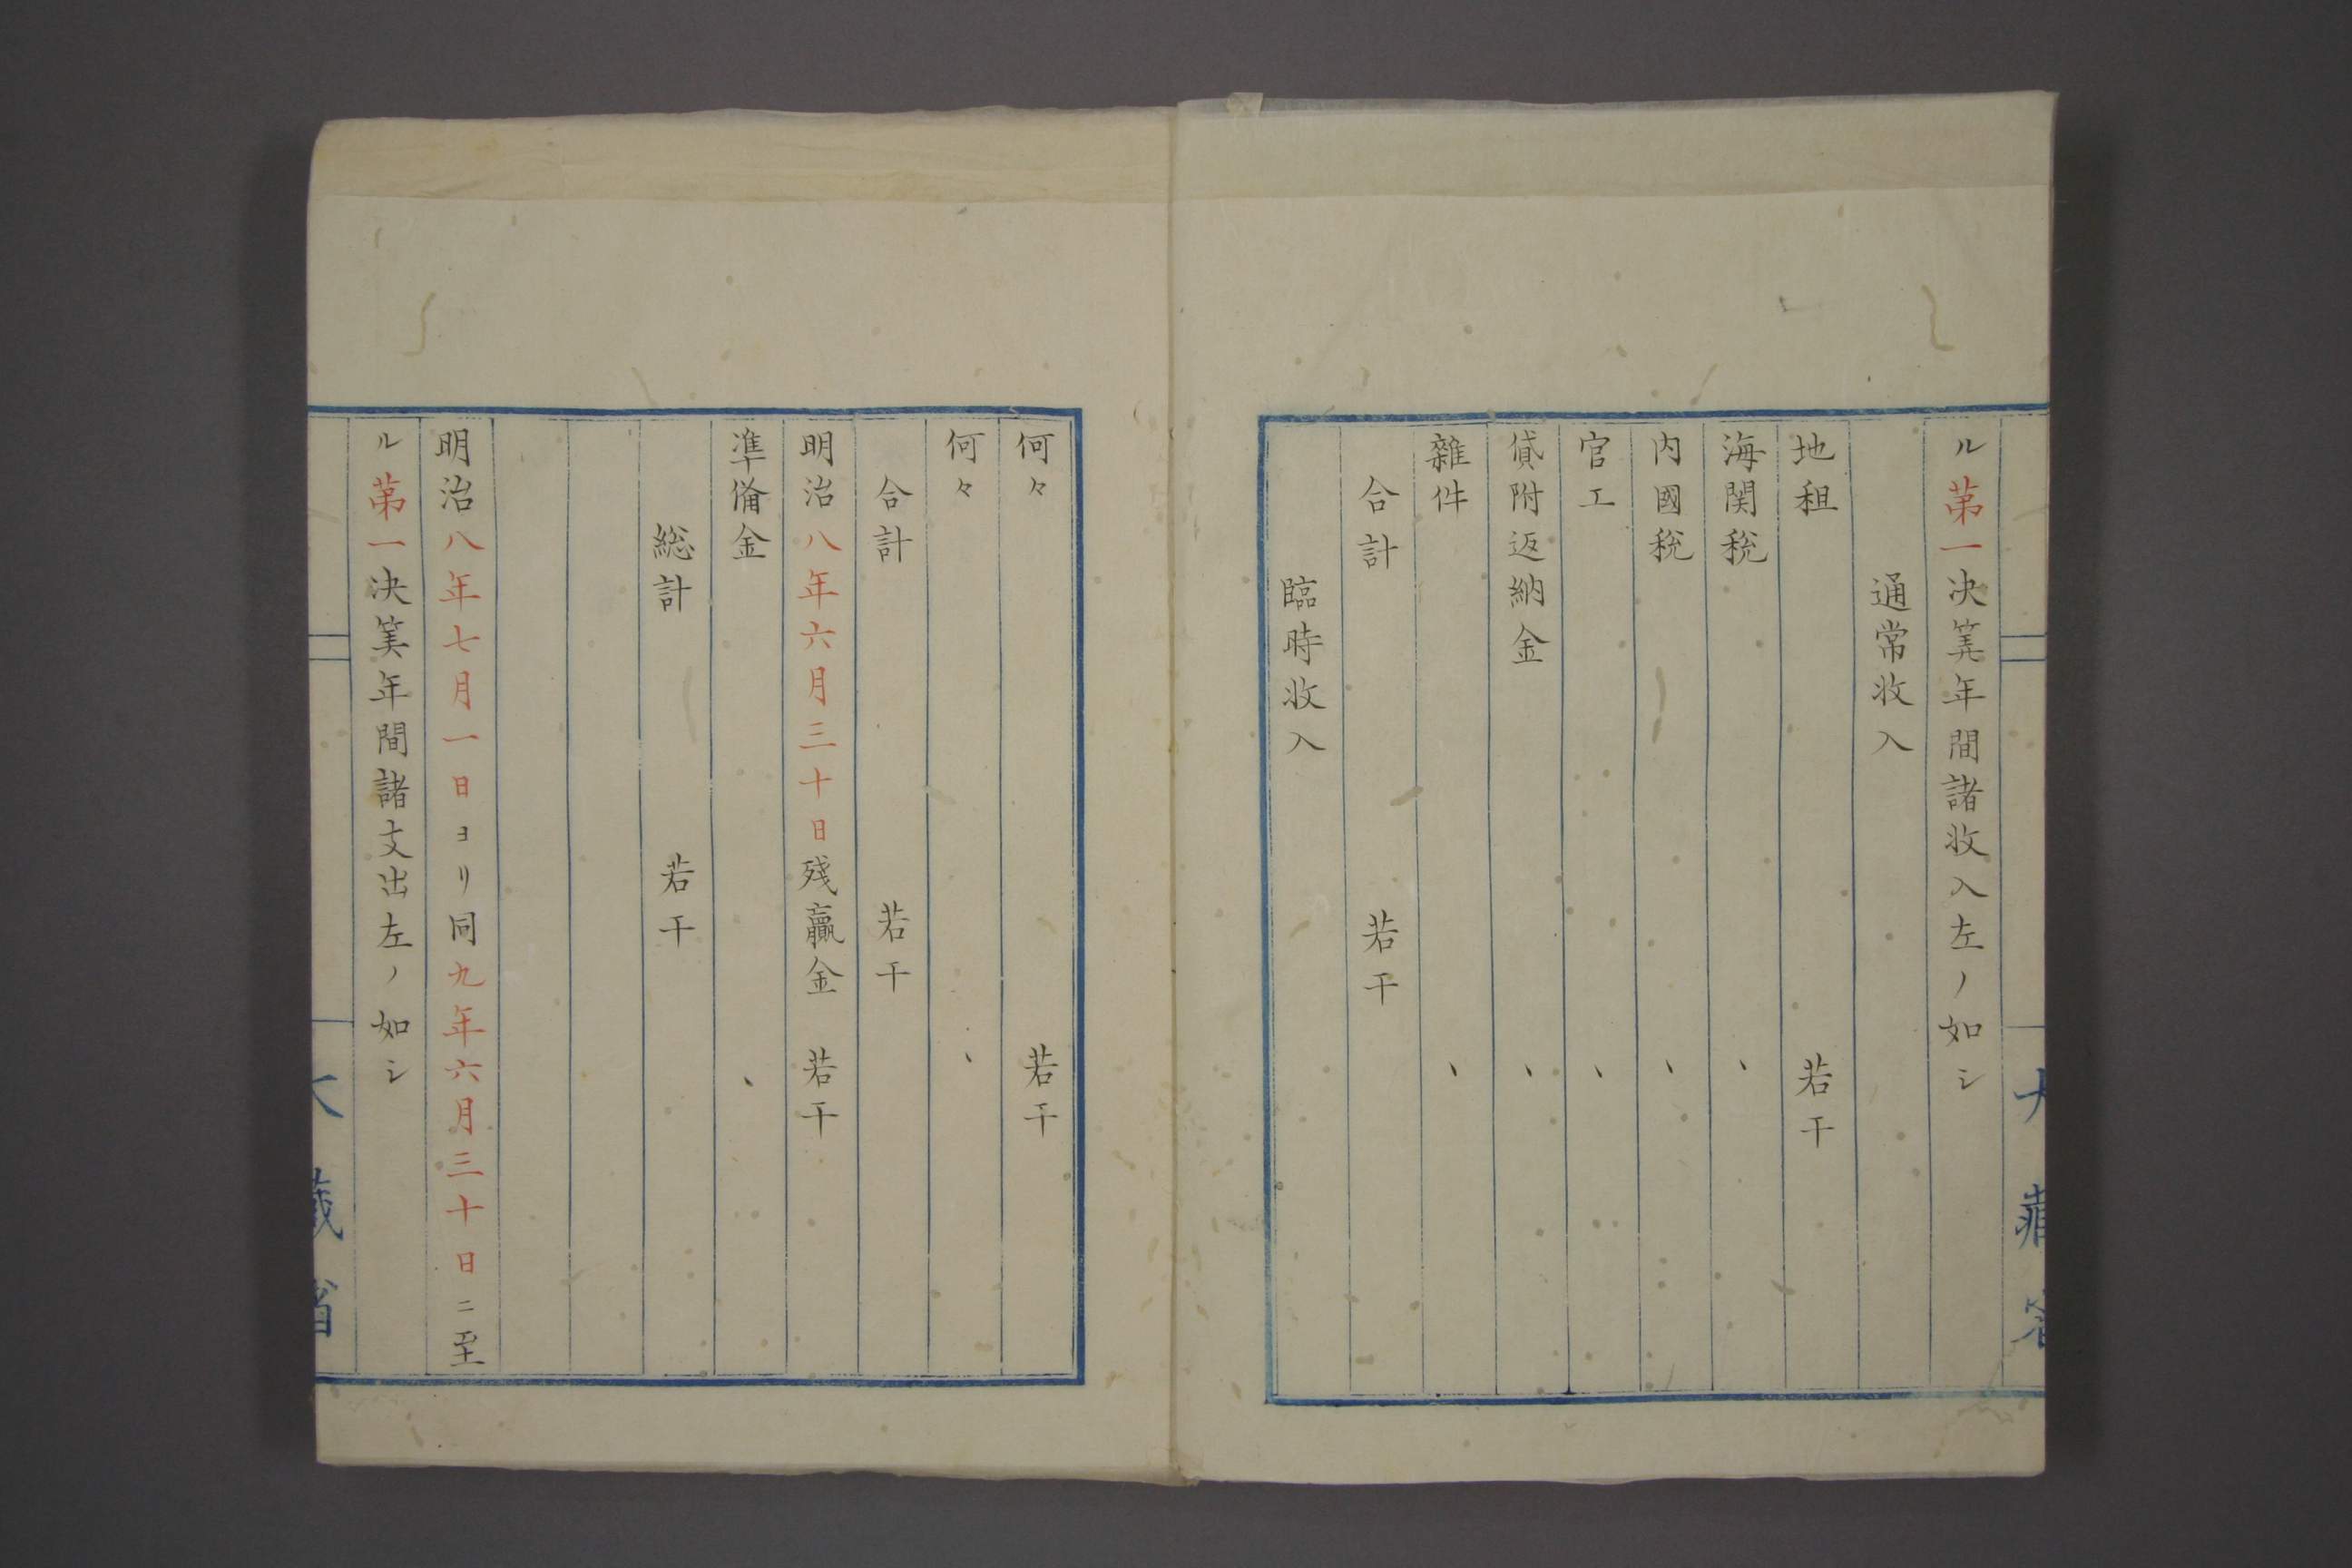 ル第一决筭年間諸收入左ノ如シ
通常收入
地租 若干
海関税 、
内國税 、
官工 、
貸附返納金 、
雜件 、
合計 若干
臨時收入
何々 若干
何々 、
合計 若干
明治八年六月三十日殘贏金 若干
準備金 、
総計 若干
明治八年七月一日ヨリ同九年六月三十日ニ至
ル第一决筭年間諸支出左ノ如シ
大藏省
大藏省